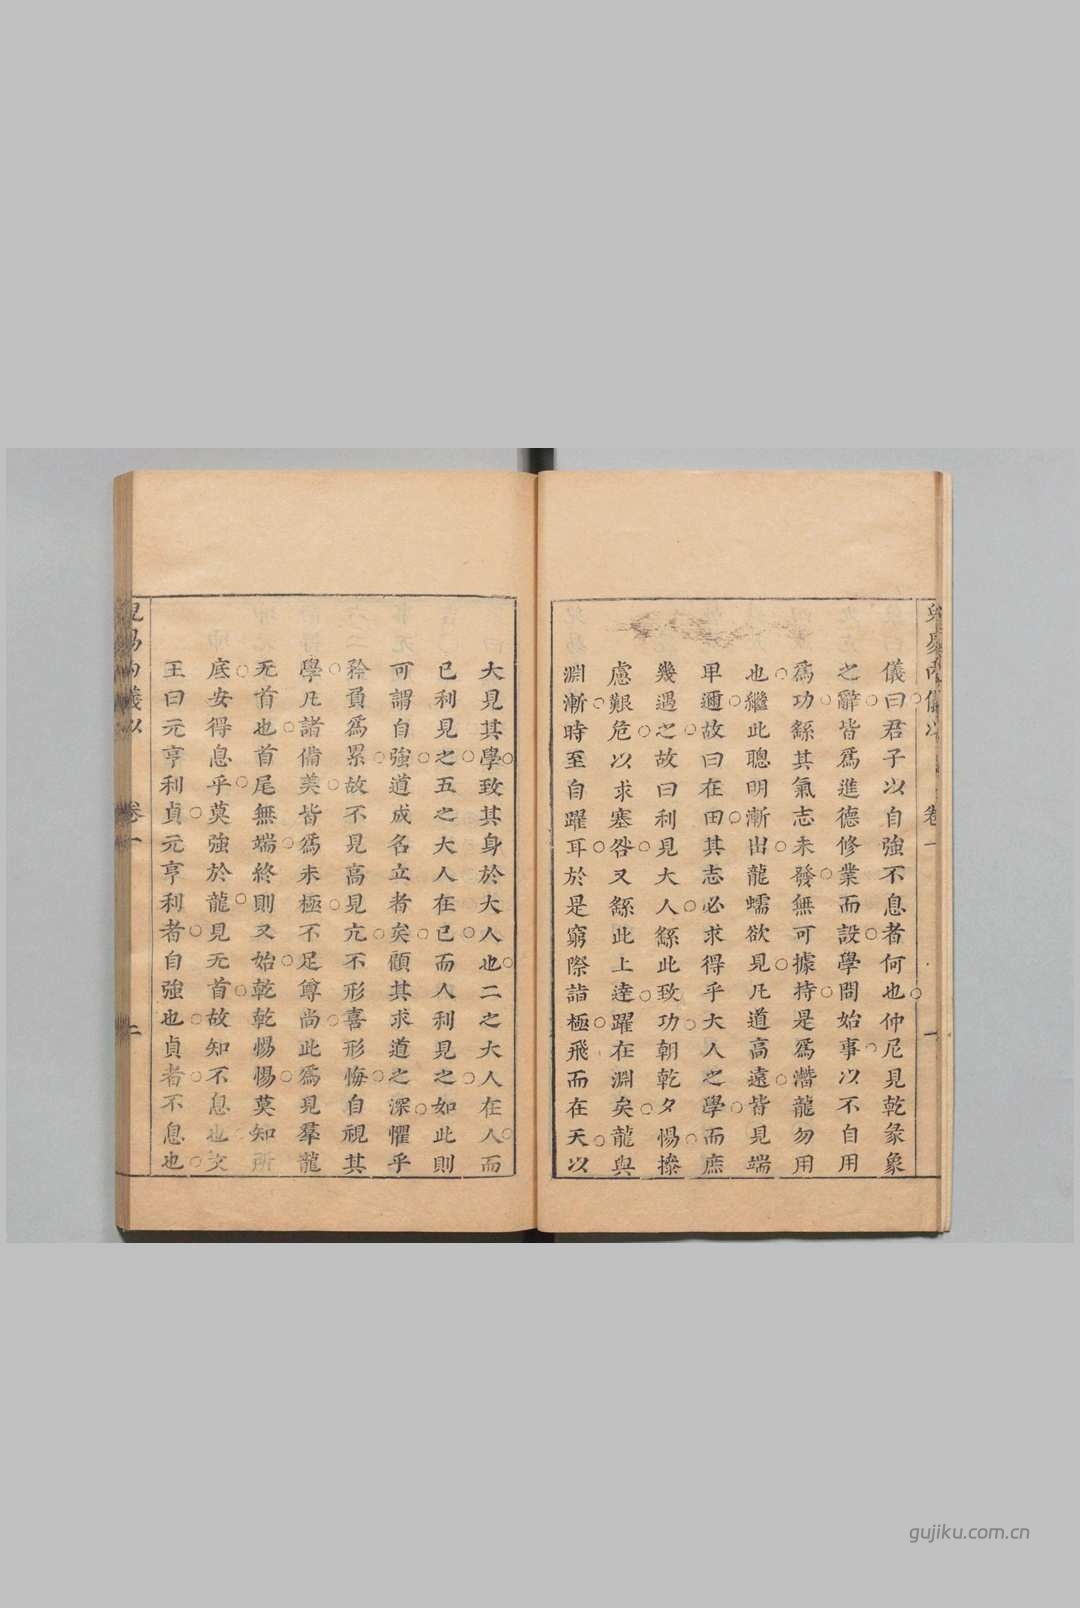 儀曰君子以自強不息者何也仲尼見乾彖象
之辭皆爲進德修業而設學問始事以不自用
爲功繇其氣志未發無可據持是爲潛龍勿用
也繼此聰明漸出龍蠕欲見凡道高遠皆見端
甲邇故曰在田其志必求得乎大人之學而庶
幾遇之故曰利見大人繇此致功朝乾夕惕操
慮艱危以求塞咎又繇此上達躍在淵矣龍與
淵漸時至自躍耳於是窮際詣極飛而在天以
大見其學致其身於大人也二之大人在人而
已利見之五之大人在已而人利見之如此則
可謂自強道成名立者矣顧其求道之深懼乎
矜負爲累故不見高見亢不形喜形悔自視其
學凡諸備美皆爲未極不足尊尚此爲見羣龍
无首也首尾無端終則又始乾乾惕惕莫知所
底安得息乎莫強於龍見无首故知不息也文
王曰元亨利貞元亨利者自強也貞者不息也
卷一
gujiku.com.cn